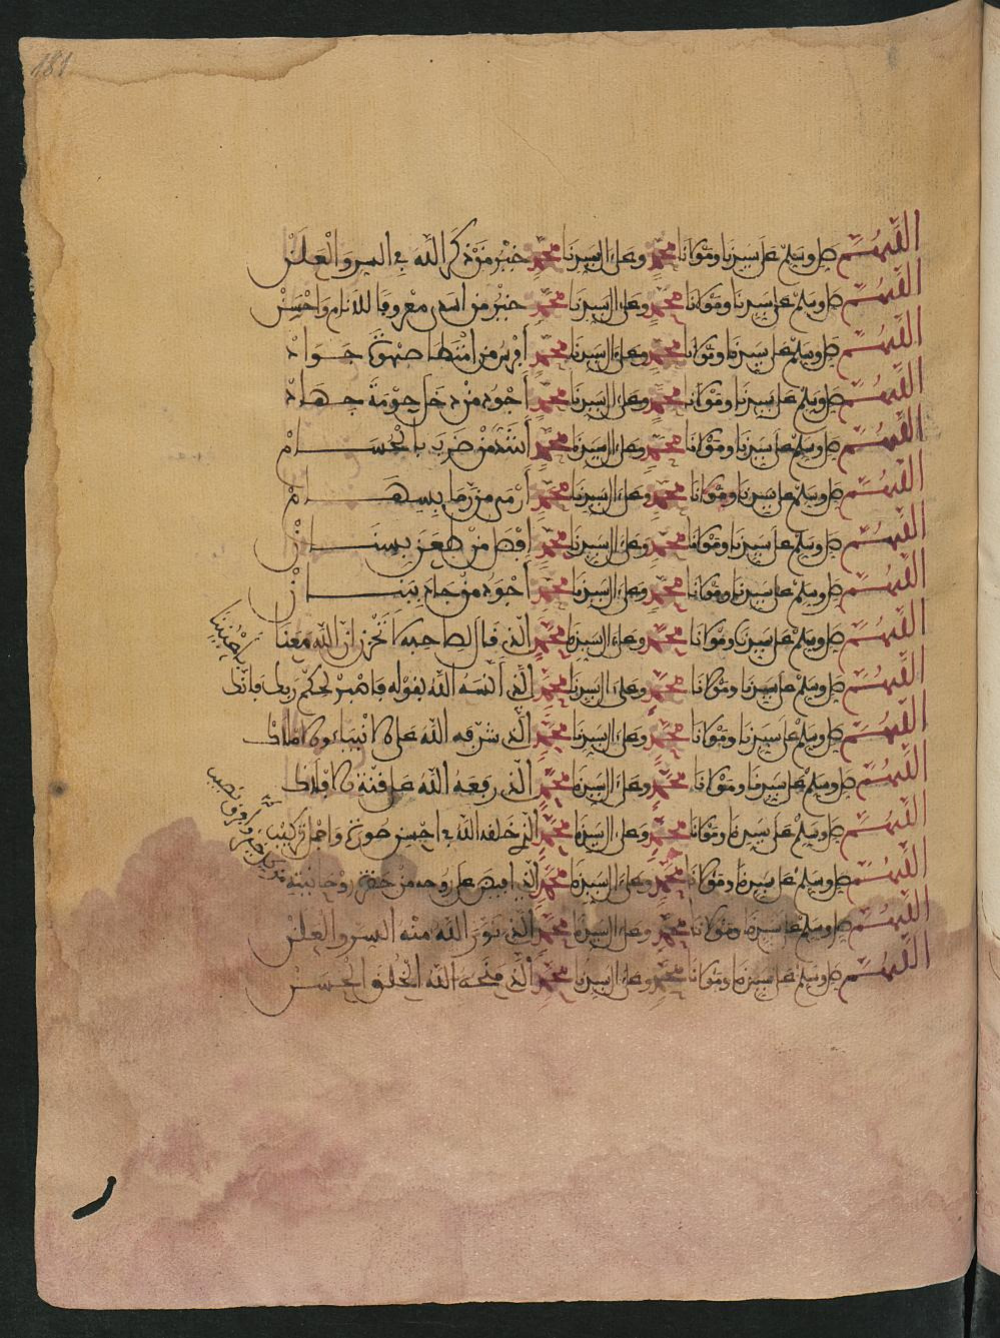 181
اللهم صل وسلم على سيدنا ومولانا محمد وعلى ءال سيدنا محمد خير من ذكر الله في السر والعلن
اللهم صل وسلم على سيدنا ومولانا محمد وعلى ءال سيدنا محمد خير من اسدى معروفا للانام واحسن
اللهم صل وسلم على سيدنا ومولانا محمد وعلى ءال سيدنا محمد من امتطا صهوة جواد
اللهم صل وسلم على سيدنا ومولانا محمد وعلى ءال سيدنا محمد اجود من دخل حومة جهاد
اللهم صل وسلم على سيدنا ومولانا محمد وعلى ءال سيدنا محمد أشد من ضرب بالحسام
اللهم صل وسلم على سيدنا ومولانا محمد وعلى ءال سيدنا محمد أرمى من رما بسهام
اللهم صل وسلم على سيدنا ومولانا محمد وعلى ءال سيدنا محمد من طعن بسنان
اللهم صل وسلم على سيدنا ومولانا محمد وعلى ءال سيدنا محمد أجود من جاد ببنان
اللهم صل وسلم على سيدنا ومولانا محمد وعلى ءال سيدنا محمد الذي قال لصاحبه لا تحزن ان الله معنا
اللهم صل وسلم على سيدنا ومولانا محمد وعلى ءال سيدنا محمد الذي ءانسه الله بقوله فاصبر لحكم ربك فانك بأعيننا
اللهم صل وسلم على سيدنا ومولانا محمد وعلى ءال سيدنا محمد الذي شرفه الله على الانبياء والاملاك
اللهم صل وسلم على سيدنا ومولانا محمد وعلى ءال سيدنا محمد الذي رفعه الله على قنة الافلاك
اللهم صل وسلم على سيدنا ومولانا محمد وعلى ءال سيدنا محمد الذي خلقه الله في احسن صورة واجمل تركيب
اللهم صل وسلم على سيدنا ومولانا محمد وعلى ءال سيدنا محمد الذي افيض على روحه من حضرة روحانيته
اللهم صل وسلم على سيدنا ومولانا محمد وعلى ءال سيدنا محمد الذي نور الله منه السر والعلن
اللهم صل وسلم على سيدنا ومولانا محمد وعلى ءال سيدنا محمد الذي منحه الله الخلق الحسن